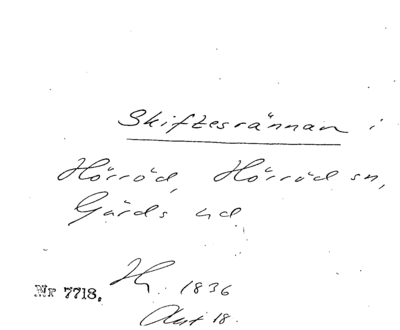 Skiftesrännan i
Hörröd, Hörröd sn,
Gärds hd
H. 1836
Nr 7718.
Akt 18.